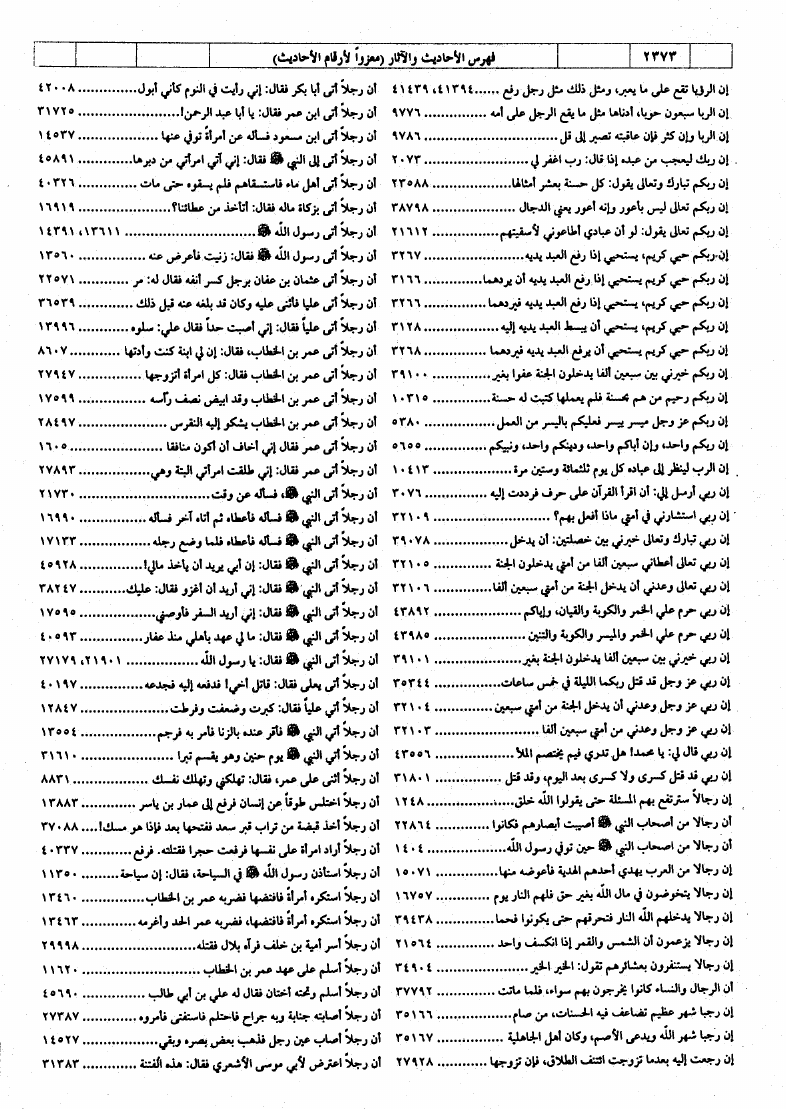 ٢٣٧٣
فهرس الأحاديث والآثار (معزواً لأرقام الأحاديث)
إن الرؤيا تقع على ما يعبر، ومثل ذلك مثل رجل رفع ......٤١٣٩٤، ٤١٤٣٩
إن الربا سبعون حوبا، أدناها مثل ما يقع الرجل على أمه ............... ٩٧٧٦
إن الربا وإن كثر فإن عاقبته تصير إلى قل ............... ٩٧٨٦
إن ربك ليعجب من عبده إذا قال: رب اغفر لي ............... ٢٠٧٣
إن ربكم تبارك وتعالى يقول: كل حسنة بعشر أمثالها ............... ٢٣٥٨٨
إن ربكم تعالى ليس بأعور وإنه أعور يعني الدجال ............... ٣٨٧٩٨
إن ربكم تعالى يقول: لو أن عبادي أطاعوني لأسقيتهم ............... ٢١٦١٢
إن ربكم حيي كريم، يستحيي إذا رفع العبد يديه ............... ٣٢٦٧
إن ربكم حيي كريم، يستحيي إذا رفع العبد يديه أن يردهما ............... ٣١٦٦
إن ربكم حيي كريم، يستحيي إذا رفع العبد يديه فيردهما ............... ٣٢٦٦
إن ربكم حيي كريم، يستحيي أن يبسط العبد يديه إليه ............... ٣١٢٨
إن ربكم حيي كريم يستحيي أن يرفع العبد يديه فيردهما ............... ٣٢٦٨
إن ربكم خيرني بين سبعين ألفا يدخلون الجنة عفوا بغير ............... ٣٩١٠٠
إن ربكم رحيم من هم بحسنة فلم يعملها كتبت له حسنة ............... ١٠٣١٥
إن ربكم عز وجل ميسر ييسر فعليكم باليسر من العمل ............... ٥٣٨٠
إن ربكم واحد، وإن أباكم واحد، ودينكم واحد، ونبيكم ............... ٥٦٥٥
إن الرب لينظر إلى عباده كل يوم ثلثمائة وستين مرة ............... ١٠٤١٣
إن ربي أرسل إلي: أن اقرأ القرآن على حرف فرددت إليه ............... ٣٠٧٦
إن ربي استشارني في أمتي ماذا أفعل بهم؟ ............... ٣٢١٠٩
إن ربي تبارك وتعالى خيرني بين خصلتين: أن يدخل ............... ٣٩٠٧٨
إن ربي تعالى أعطاني سبعين ألفا من أمتي يدخلون الجنة ............... ٣٢١٠٥
إن ربي تعالى وعدني أن يدخل الجنة من أمتي سبعين ألفا ............... ٣٢١٠٦
إن ربي حرم علي الخمر والكوبة والقيان، وإياكم ............... ٤٣٨٩٢
إن ربي حرم علي الخمر والميسر والكوبة والقنين ............... ٤٣٩٨٥
إن ربي خيرني بين سبعين ألفا يدخلون الجنة بغير ............... ٣٩١٠١
إن ربي عز وجل قد قتل ربكما الليلة في خمس ساعات ............... ٣٥٣٤٤
إن ربي عز وجل وعدني أن يدخل الجنة من أمتي سبعين ............... ٣٢١٠٤
إن ربي عز وجل وعدني من أمتي سبعين ألفا ............... ٣٢١٠٣
إن ربي قال لي: يا محمد! هل تدري فيم يختصم الملأ ............... ٤٣٥٥٦
إن ربي قد قتل كسرى ولا كسرى بعد اليوم، وقد قتل ............... ٣١٨٠١
إن رجالاً سترتفع بهم المسئلة حتى يقولوا الله خلق ............... ١٢٤٨
أن رجالا من أصحاب النبي ﷺ أصيبت أبصارهم فكانوا ............... ٢٢٨٦٤
أن رجالا من اصحاب النبي ﷺ حين توفي رسول الله ............... ١٤٠٤
إن رجالا من العرب يهدي أحدهم الهدية فأعوضه منها ............... ١٥٠٧١
إن رجالا يتخوضون في مال الله بغير حق فلهم النار يوم ............... ١٦٧٥٧
إن رجالا يدخلهم الله النار فتحرقهم حتى يكونوا فحما ............... ٣٩٤٣٨
إن رجالا يزعمون أن الشمس والقمر إذا انكسف واحد ............... ٢١٥٦٤
إن رجالا يستنفرون بعشائرهم تقول: الخير الخير ............... ٣٤٩٠٤
أن الرجال والنساء كانوا يخرجون بهم سواء، فلما ماتت ............... ٣٧٧٩٢
إن رجبا شهر عظيم تضاعف فيه الحسنات، من صام ............... ٣٥١٦٦
إن رجبا شهر الله ويدعى الأصم، وكان أهل الجاهلية ............... ٣٥١٦٧
إن رجعت إليه بعدما تزوجت ائتنف الطلاق، فإن تزوجها ............... ٢٧٩٢٨
أن رجلاً أتى أبا بكر فقال: إني رأيت في النوم كأني أبول ............... ٤٢٠٠٨
أن رجلاً أتى ابن عمر فقال: يا أبا عبد الرحمن! ............... ٣١٧٢٥
أن رجلاً أتى ابن مسعود فسأله عن امرأة توفي عنها ............... ١٤٥٣٧
أن رجلاً أتى إلى النبي ﷺ فقال: إني آتي امرأتي من دبرها ............... ٤٥٨٩١
أن رجلاً أتى أهل ماء فاستسقاهم فلم يسقوه حتى مات ............... ٤٠٣٢٦
أن رجلاً أتى بزكاة ماله فقال: أتأخذ من عطائنا؟ ............... ١٦٩١٩
أن رجلاً أتى رسول الله ﷺ ............... ١٣٦١١، ١٤٣٩١
أن رجلاً أتى رسول الله ﷺ فقال: زنيت فأعرض عنه ............... ١٣٥٦٠
أن رجلاً أتى عثمان بن عفان برجل كسر أنفه فقال له: مر ............... ٢٢٥٧١
أن رجلاً أتى عليا فأثنى عليه وكان قد بلغه عنه قبل ذلك ............... ٣٦٥٣٩
أن رجلاً أتى علياً فقال: إني أصبت حداً فقال علي: سلوه ............... ١٣٩٩٦
أن رجلاً أتى عمر بن الخطاب، فقال: إن لي ابنة كنت وأدتها ............... ٨٦٠٧
أن رجلاً أتى عمر بن الخطاب فقال: كل امرأة أتزوجها ............... ٢٧٩٤٧
أن رجلاً أتى عمر بن الخطاب وقد ابيض نصف رأسه ............... ١٧٥٩٩
أن رجلاً أتى عمر بن الخطاب يشكو إليه النقرس ............... ٢٨٤٩٧
أن رجلاً أتى عمر فقال إني أخاف أن أكون منافقا ............... ١٦٠٥
أن رجلاً أتى عمر فقال: إني طلقت امرأتي البتة وهي ............... ٢٧٨٩٣
أن رجلاً أتى النبي ﷺ، فسأله عن وقت ............... ٢١٧٣٠
أن رجلاً أتى النبي ﷺ فسأله فأعطاه ثم أتاه آخر فسأله ............... ١٦٩٩٠
أن رجلاً أتى النبي ﷺ فسأله فأعطاه فلما وضع رجله ............... ١٧١٣٣
أن رجلاً أتى النبي ﷺ فقال: إن أبي يريد أن يأخذ مالي! ............... ٤٥٩٢٨
أن رجلاً أتى النبي ﷺ فقال: إني أريد أن أغزو فقال: عليك ............... ٣٨٢٤٧
أن رجلاً أتى النبي ﷺ فقال: إني أريد السفر فأوصني ............... ١٧٥٩٥
أن رجلاً أتى النبي ﷺ فقال: ما لي عهد بأهلي منذ عفار ............... ٤٠٥٩٣
أن رجلاً أتى النبي ﷺ فقال: يا رسول الله ............... ٢١٩٠١، ٢٧١٧٩
أن رجلاً أتى يعلى فقال: قاتل أخي! فدفعه إليه فجدعه ............... ٤٠١٩٧
أن رجلاً أتي علياً فقال: كبرت وضعفت وفرطت ............... ١٢٨٤٧
أن رجلاً أتي النبي ﷺ فأقر عنده بالزنا فأمر به فرجم ............... ١٣٥٥٤
أن رجلاً أتي النبي ﷺ يوم حنين وهو يقسم تبرا ............... ٣١٦١٠
أن رجلاً أثنى على عمر، فقال: تهلكني وتهلك نفسك ............... ٨٨٣١
أن رجلاً اختلس طوقاً عن إنسان فرفع إلى عمار بن ياسر ............... ١٣٨٨٣
أن رجلاً أخذ قبضة من تراب قبر سعد ففتحها بعد فإذا هو مسك! .... ٣٧٠٨٨
أن رجلاً أراد امرأة على نفسها فرفعت حجرا فقتلته. فرفع ............... ٤٠٣٣٧
أن رجلاً استأذن رسول الله ﷺ في السياحة، فقال: إن سياحة ............... ١١٣٥٠
أن رجلاً استكره امرأة فافتضها فضربه عمر بن الخطاب ............... ١٣٤٦٠
أن رجلاً استكره امرأة فافتضها، فضربه عمر الحد وأغرمه ............... ١٣٤٦٣
أن رجلاً أسر أمية بن خلف فرآه بلال فقتله ............... ٢٩٩٩٨
أن رجلاً أسلم على عهد عمر بن الخطاب ............... ١١٦٢٠
أن رجلاً أسلم وتحته أختان فقال له علي بن أبي طالب ............... ٤٥٦٩٠
أن رجلاً أصابته جنابة وبه جراح فاحتلم فاستفتى فأمروه ............... ٢٧٣٨٧
أن رجلاً أصاب عين رجل فذهب بعض بصره وبقي ............... ١٤٥٢٧
أن رجلاً اعترض لأبي موسى الأشعري فقال: هذه الفتنة ............... ٣١٣٨٣